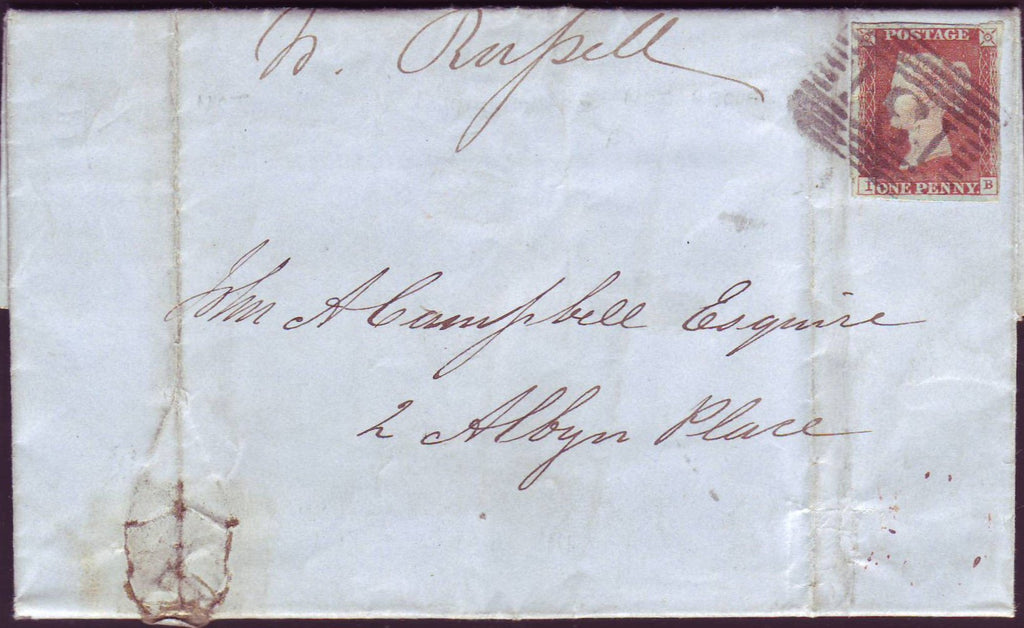 W. Russell
POSTAGE
ONE PENNY.
I B
John A Campbell Esquire
2 Albyn Place